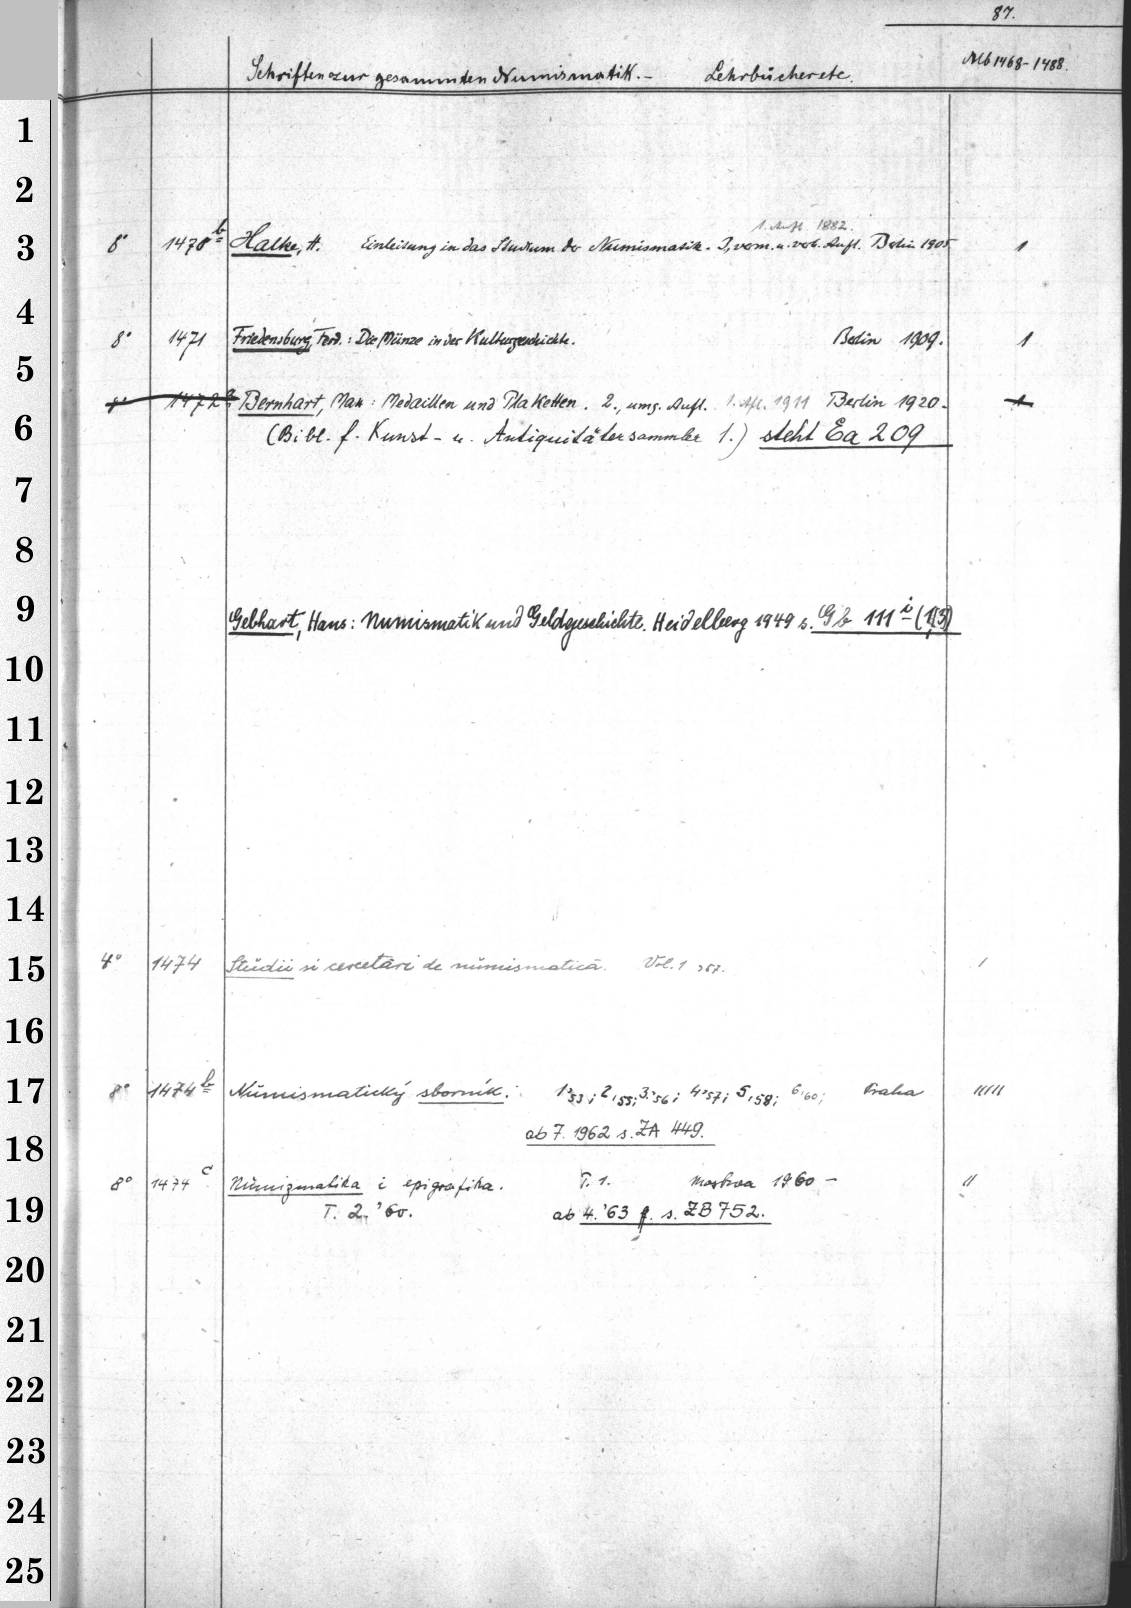 87.
Schriften zur gesammten Numismatik. - Lehrbücher etc. Mb 1468-1488.
1
2
1. Aufl. 1882.
3 8° 1478 b Halke, H. Einleitung in das Studium der Numismatik. 3, verm. u. verb. Aufl. Berlin 1905 1
4
8° 1471 Friedensburg, Ferd.: Die Münze in der Kulturgeschichte. Berlin 1909. 1
5
8° 1472 a Bernhart, Max: Medaillen und Plaketten. 2., umg. Aufl. 1. Afl. 1911 Berlin 1920. 1
6 (Bibl. f. Kunst- u. Antiquitätensammler 1.) steht Ea 209
7
8
9 Gebhart, Hans: Numismatik und Geldgeschichte. Heidelberg 1949 s. Gb 111 i (1,3)
10
11
12
13
14
15 4° 1474 Studii si cercetări de numismatică. Vol. 1 '57. /
16
17 8° 1474 b Numismatický sborník: 1'53; 2'55; 3'56; 4'57; 5'58; 6'60; Praha /////
ab 7. 1962 s. ZA 449.
18
8° 1474 c Numizmatika i epigrafika. T. 1. Moskva 1960 - //
19 T. 2. '60. ab 4. '63 f. s. ZB 752.
20
21
22
23
24
25